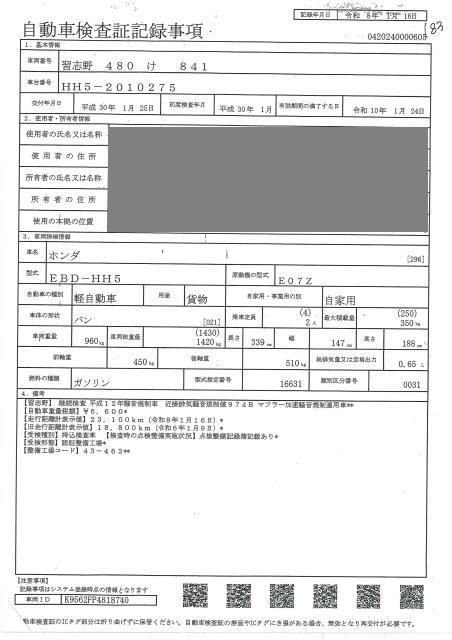 記録年月日 令和 8年 1月 16日
自動車検査証記録事項
83
0420240000605
1. 基本情報
車両番号 習志野 480 け 841
車台番号 HH5-2010275
交付年月日 平成 30年 1月 25日 初度検査年月 平成 30年 1月 有効期間の満了する日 令和 10年 1月 24日
2. 使用者・所有者情報
使用者の氏名又は名称
使用者の住所
所有者の氏名又は名称
所有者の住所
使用の本拠の位置
3. 車両詳細情報
車名 ホンダ [296]
型式 EBD-HH5 原動機の型式 E07Z
自動車の種別 軽自動車 用途 貨物 自家用・事業用の別 自家用
車体の形状 バン [021] 乗車定員 (4) 2人 最大積載量 (250) 350kg
車両重量 960kg 車両総重量 (1430) 1420kg 長さ 339cm 幅 147cm 高さ 188cm
前軸重 450kg 後軸重 510kg 総排気量又は定格出力 0.65 L
燃料の種類 ガソリン 型式指定番号 16631 類別区分番号 0031
4. 備考
【習志野】 継続検査 平成12年騒音規制車 近接排気騒音規制値97dB マフラー加速騒音規制適用車**
【自動車重量税額】¥6,600*
【走行距離計表示値】23,100km(令和8年1月16日)*
【旧走行距離計表示値】18,800km(令和6年1月9日)*
【受検種別】持込検査車 【検査時の点検整備実施状況】点検整備記録簿記載あり*
【受検形態】認証整備工場*
【整備工場コード】43-463**
【注意事項】
記録事項はシステム登録時点の情報となります
車両ID K9562FP4818740
自動車検査証のICタグ部分は折り曲げずに保管ください。自動車検査証の券面やICタグにき損がある場合、無効となり再交付が必要です。